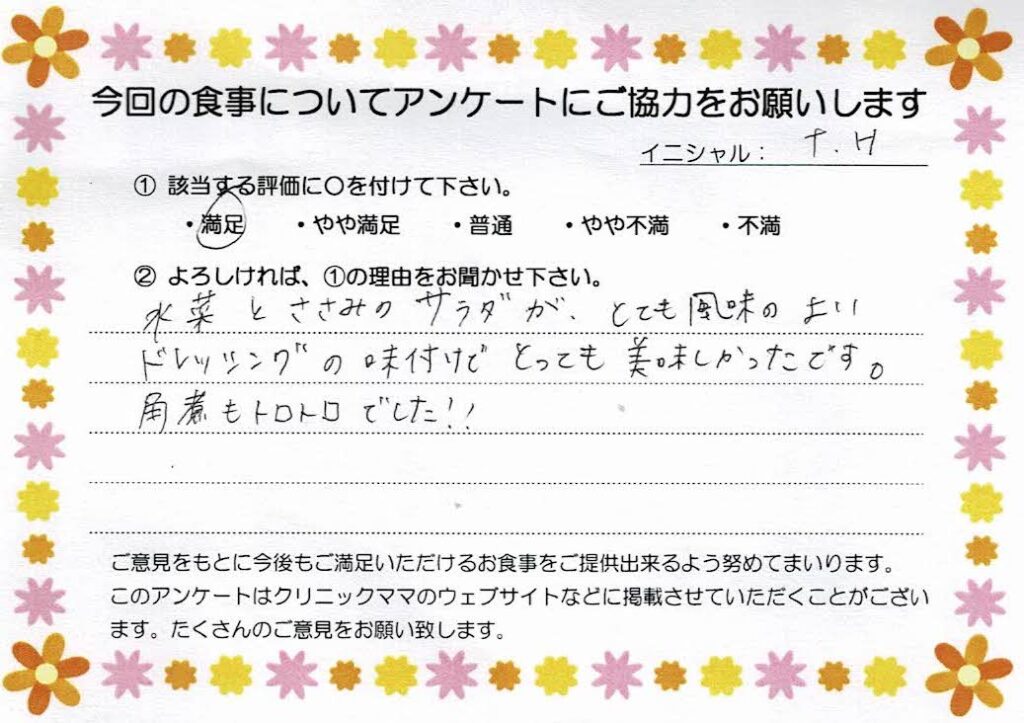 今回の食事についてアンケートにご協力をお願いします
イニシャル： T.H
① 該当する評価に○を付けて下さい。
・満足　・やや満足　・普通　・やや不満　・不満
② よろしければ、①の理由をお聞かせ下さい。
水菜とささみのサラダが、とても風味のよい
ドレッシングの味付けでとっても美味しかったです。
角煮もトロトロでした!!
ご意見をもとに今後もご満足いただけるお食事をご提供出来るよう努めてまいります。
このアンケートはクリニックママのウェブサイトなどに掲載させていただくことがござい
ます。たくさんのご意見をお願い致します。